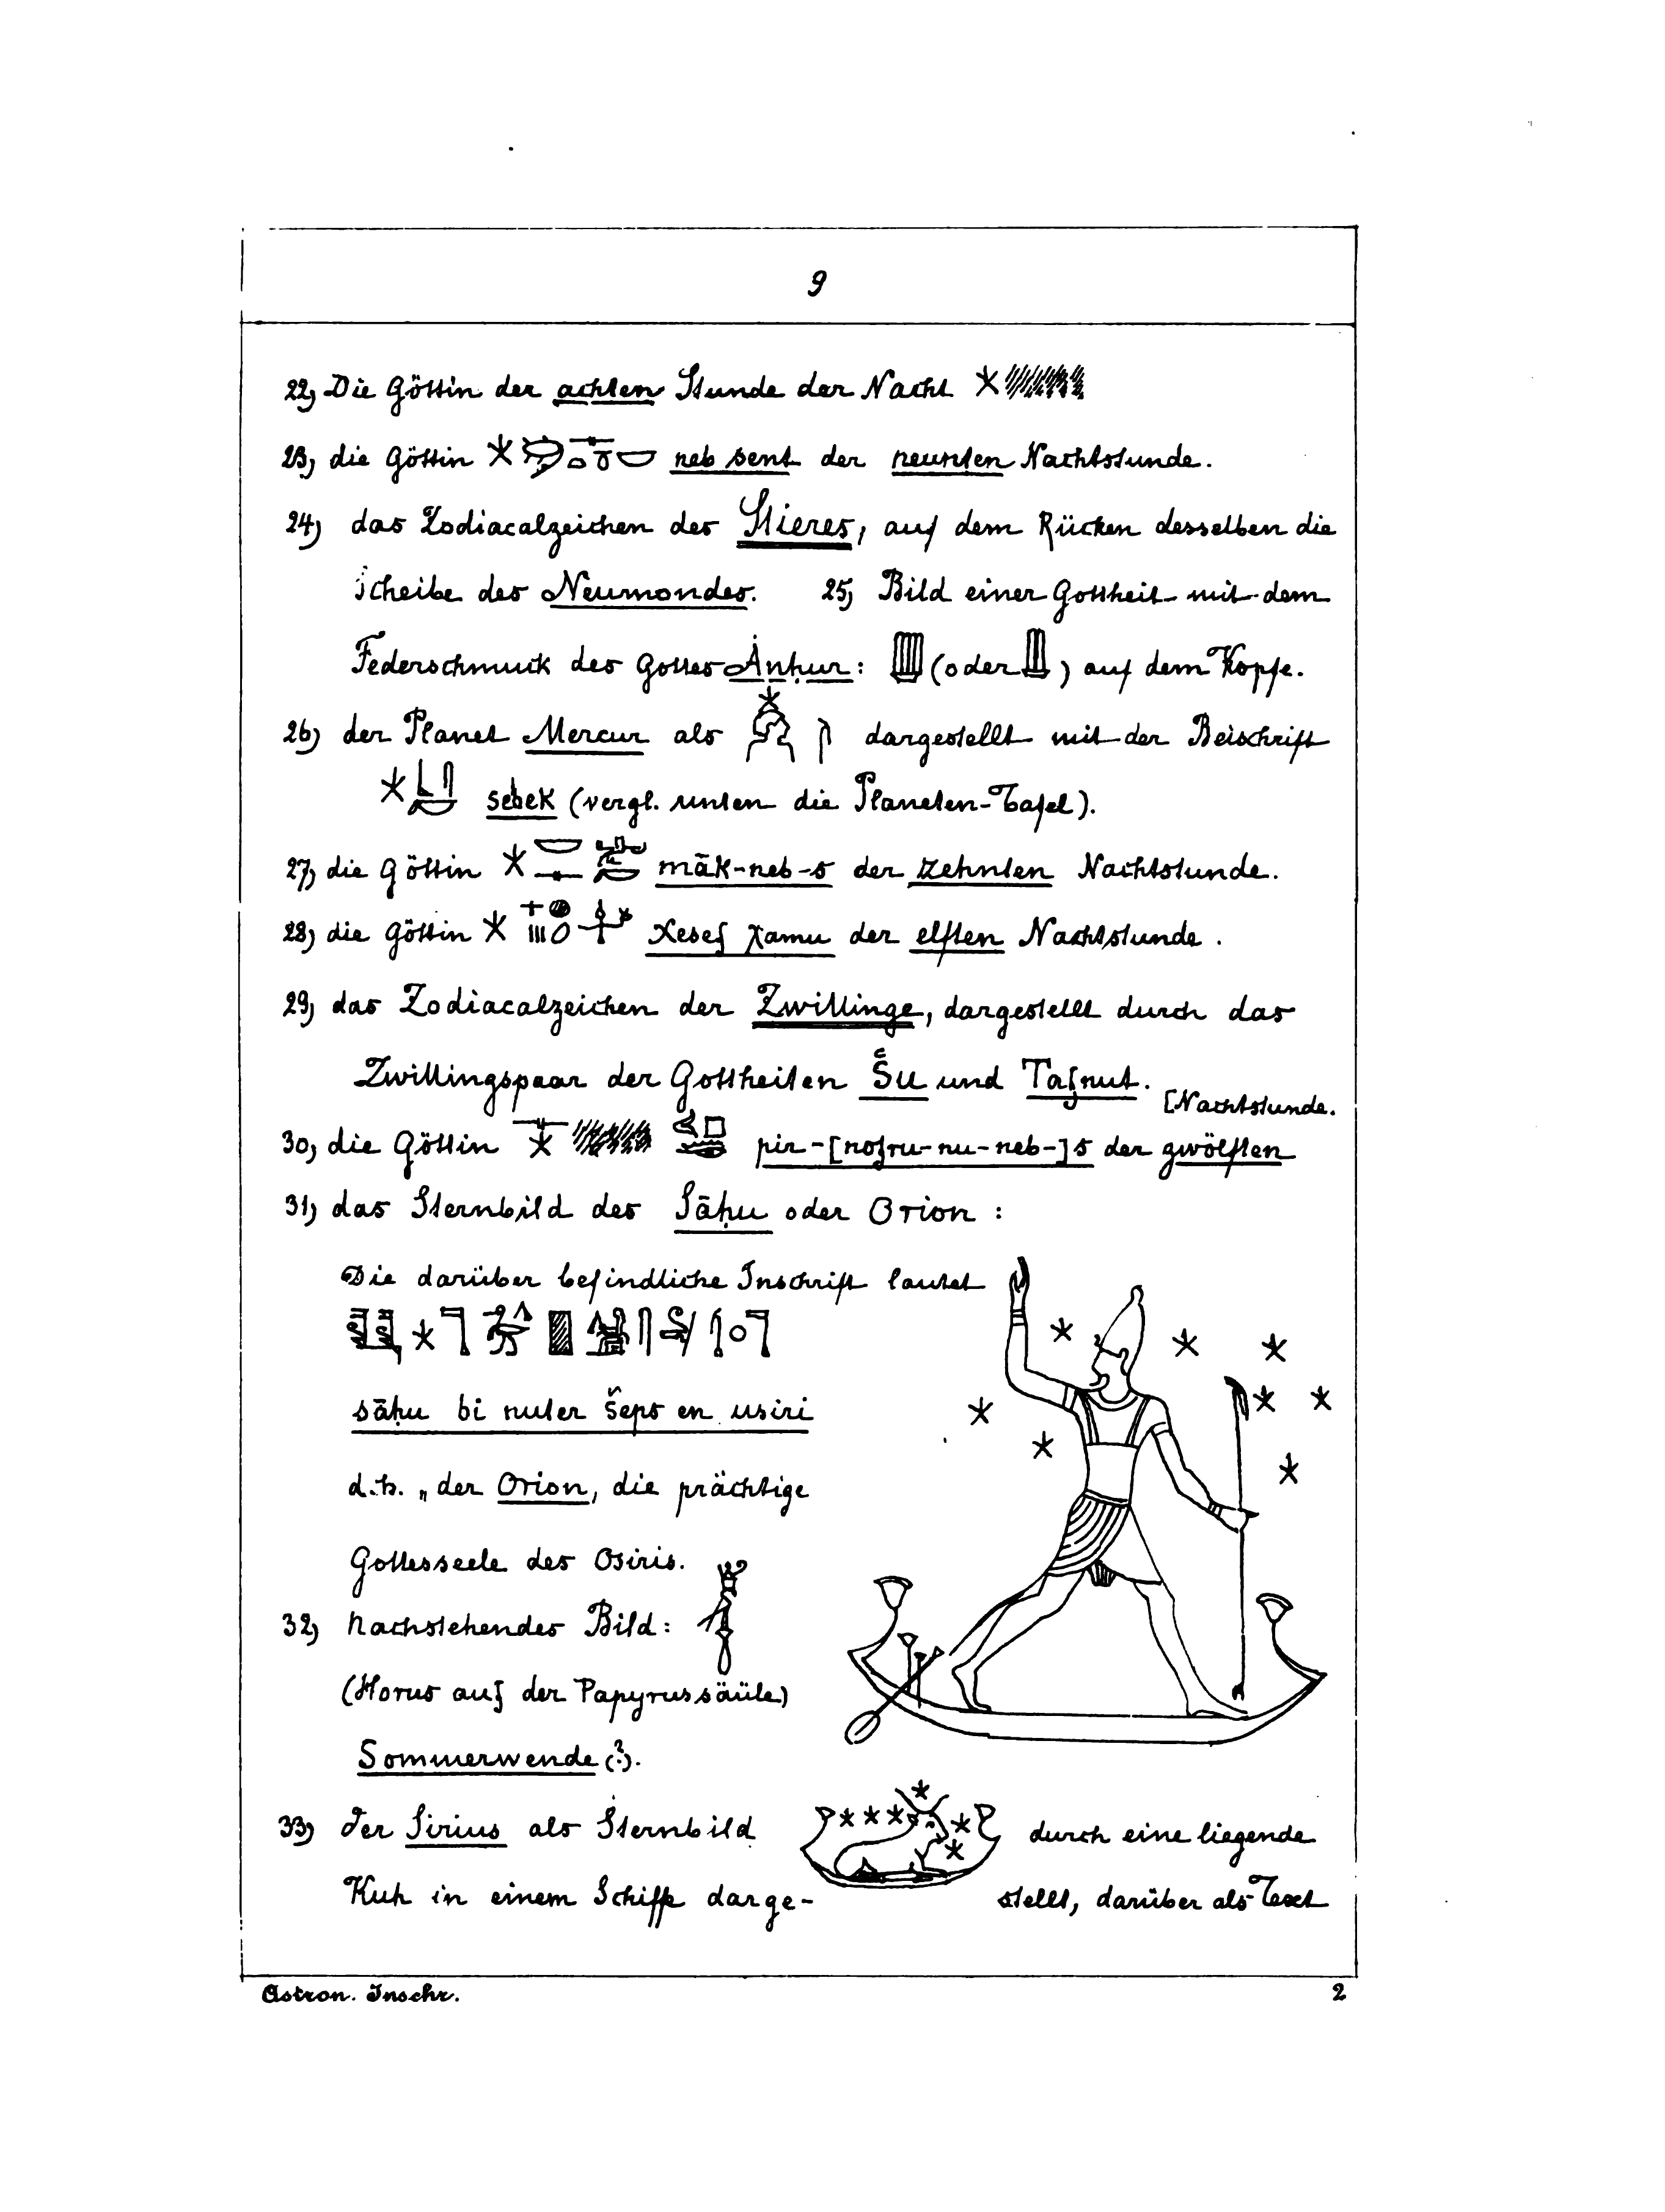 9
22) Die Göttin der achten Stunde der Nacht
23) die Göttin neb sent der neunten Nachtstunde.
24) das Zodiacalzeichen des Stieres, auf dem Rücken desselben die
Scheibe des Neumondes. 25) Bild einer Gottheit mit dem
Federschmuck des Gottes Ànḥur: (oder ) auf dem Kopfe.
26) der Planet Mercur als dargestellt mit der Beischrift
sebek (vergl. unten die Planeten-Tafel).
27) die Göttin māk-neb-s der zehnten Nachtstunde.
28) die Göttin χesef χamu der elften Nachtstunde.
29) das Zodiacalzeichen der Zwillinge, dargestellt durch das
Zwillingspaar der Gottheiten Šu und Tafnut.
[Nachtstunde.
30) die Göttin pir-[nofru-nu-neb-]s der zwölften
31) das Sternbild des Sāḥu oder Orion:
Die darüber befindliche Inschrift lautet
sāḥu bi nuter šeps en usiri
d.h. „der Orion, die prächtige
Gottesseele des Osiris.
32) nachstehendes Bild:
(Horus auf der Papyrussäüle)
Sommerwende (?).
33) der Sirius als Sternbild durch eine liegende
Kuh in einem Schiffe darge- stellt, darüber als Text
Astron. Inschr. 2